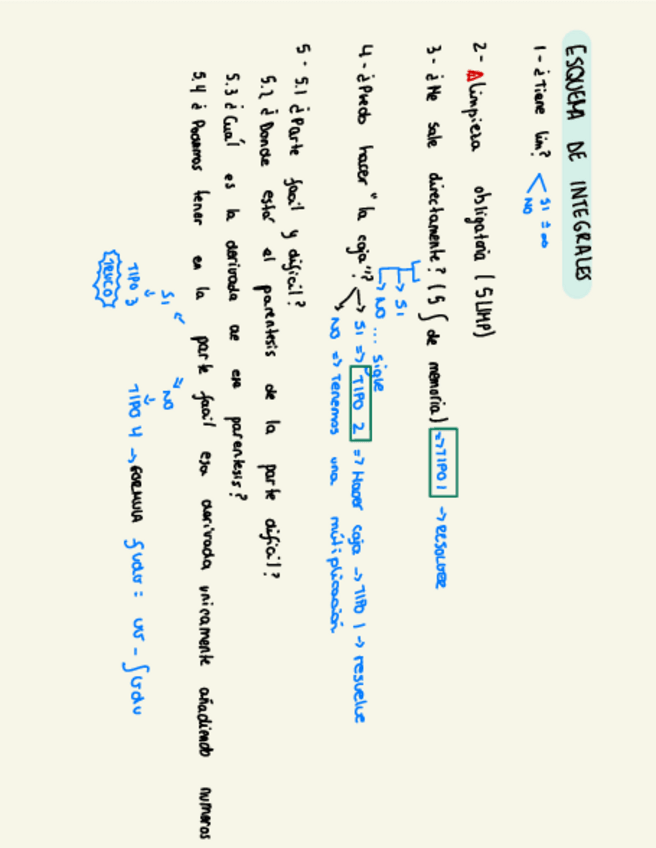 ESQUEMA DE INTEGRALES
1 - ¿Tiene lim? < SI ± ∞
NO
2 - Limpieza obligatoria (5 LIMP)
3 - ¿Me sale directamente? (5 ∫ de memoria) => TIPO 1 → RESOLVER
→ SI
→ NO ... sigue
4 - ¿Puedo hacer "la caja"? → SI => TIPO 2 => Hacer caja → TIPO 1 → resuelve
NO => Tenemos una multiplicación
5 - 5.1 ¿Parte facil y dificil?
5.2 ¿Donde estar el parentesis de la parte dificil?
5.3 ¿Cuál es la derivada de ese parentesis?
5.4 ¿Podemos tener en la parte facil esa derivada unicamente añadiendo numeros
SI
NO
TIPO 3
TIPO 4 → FORMULA ∫udv = uv - ∫vdu
TRUCO